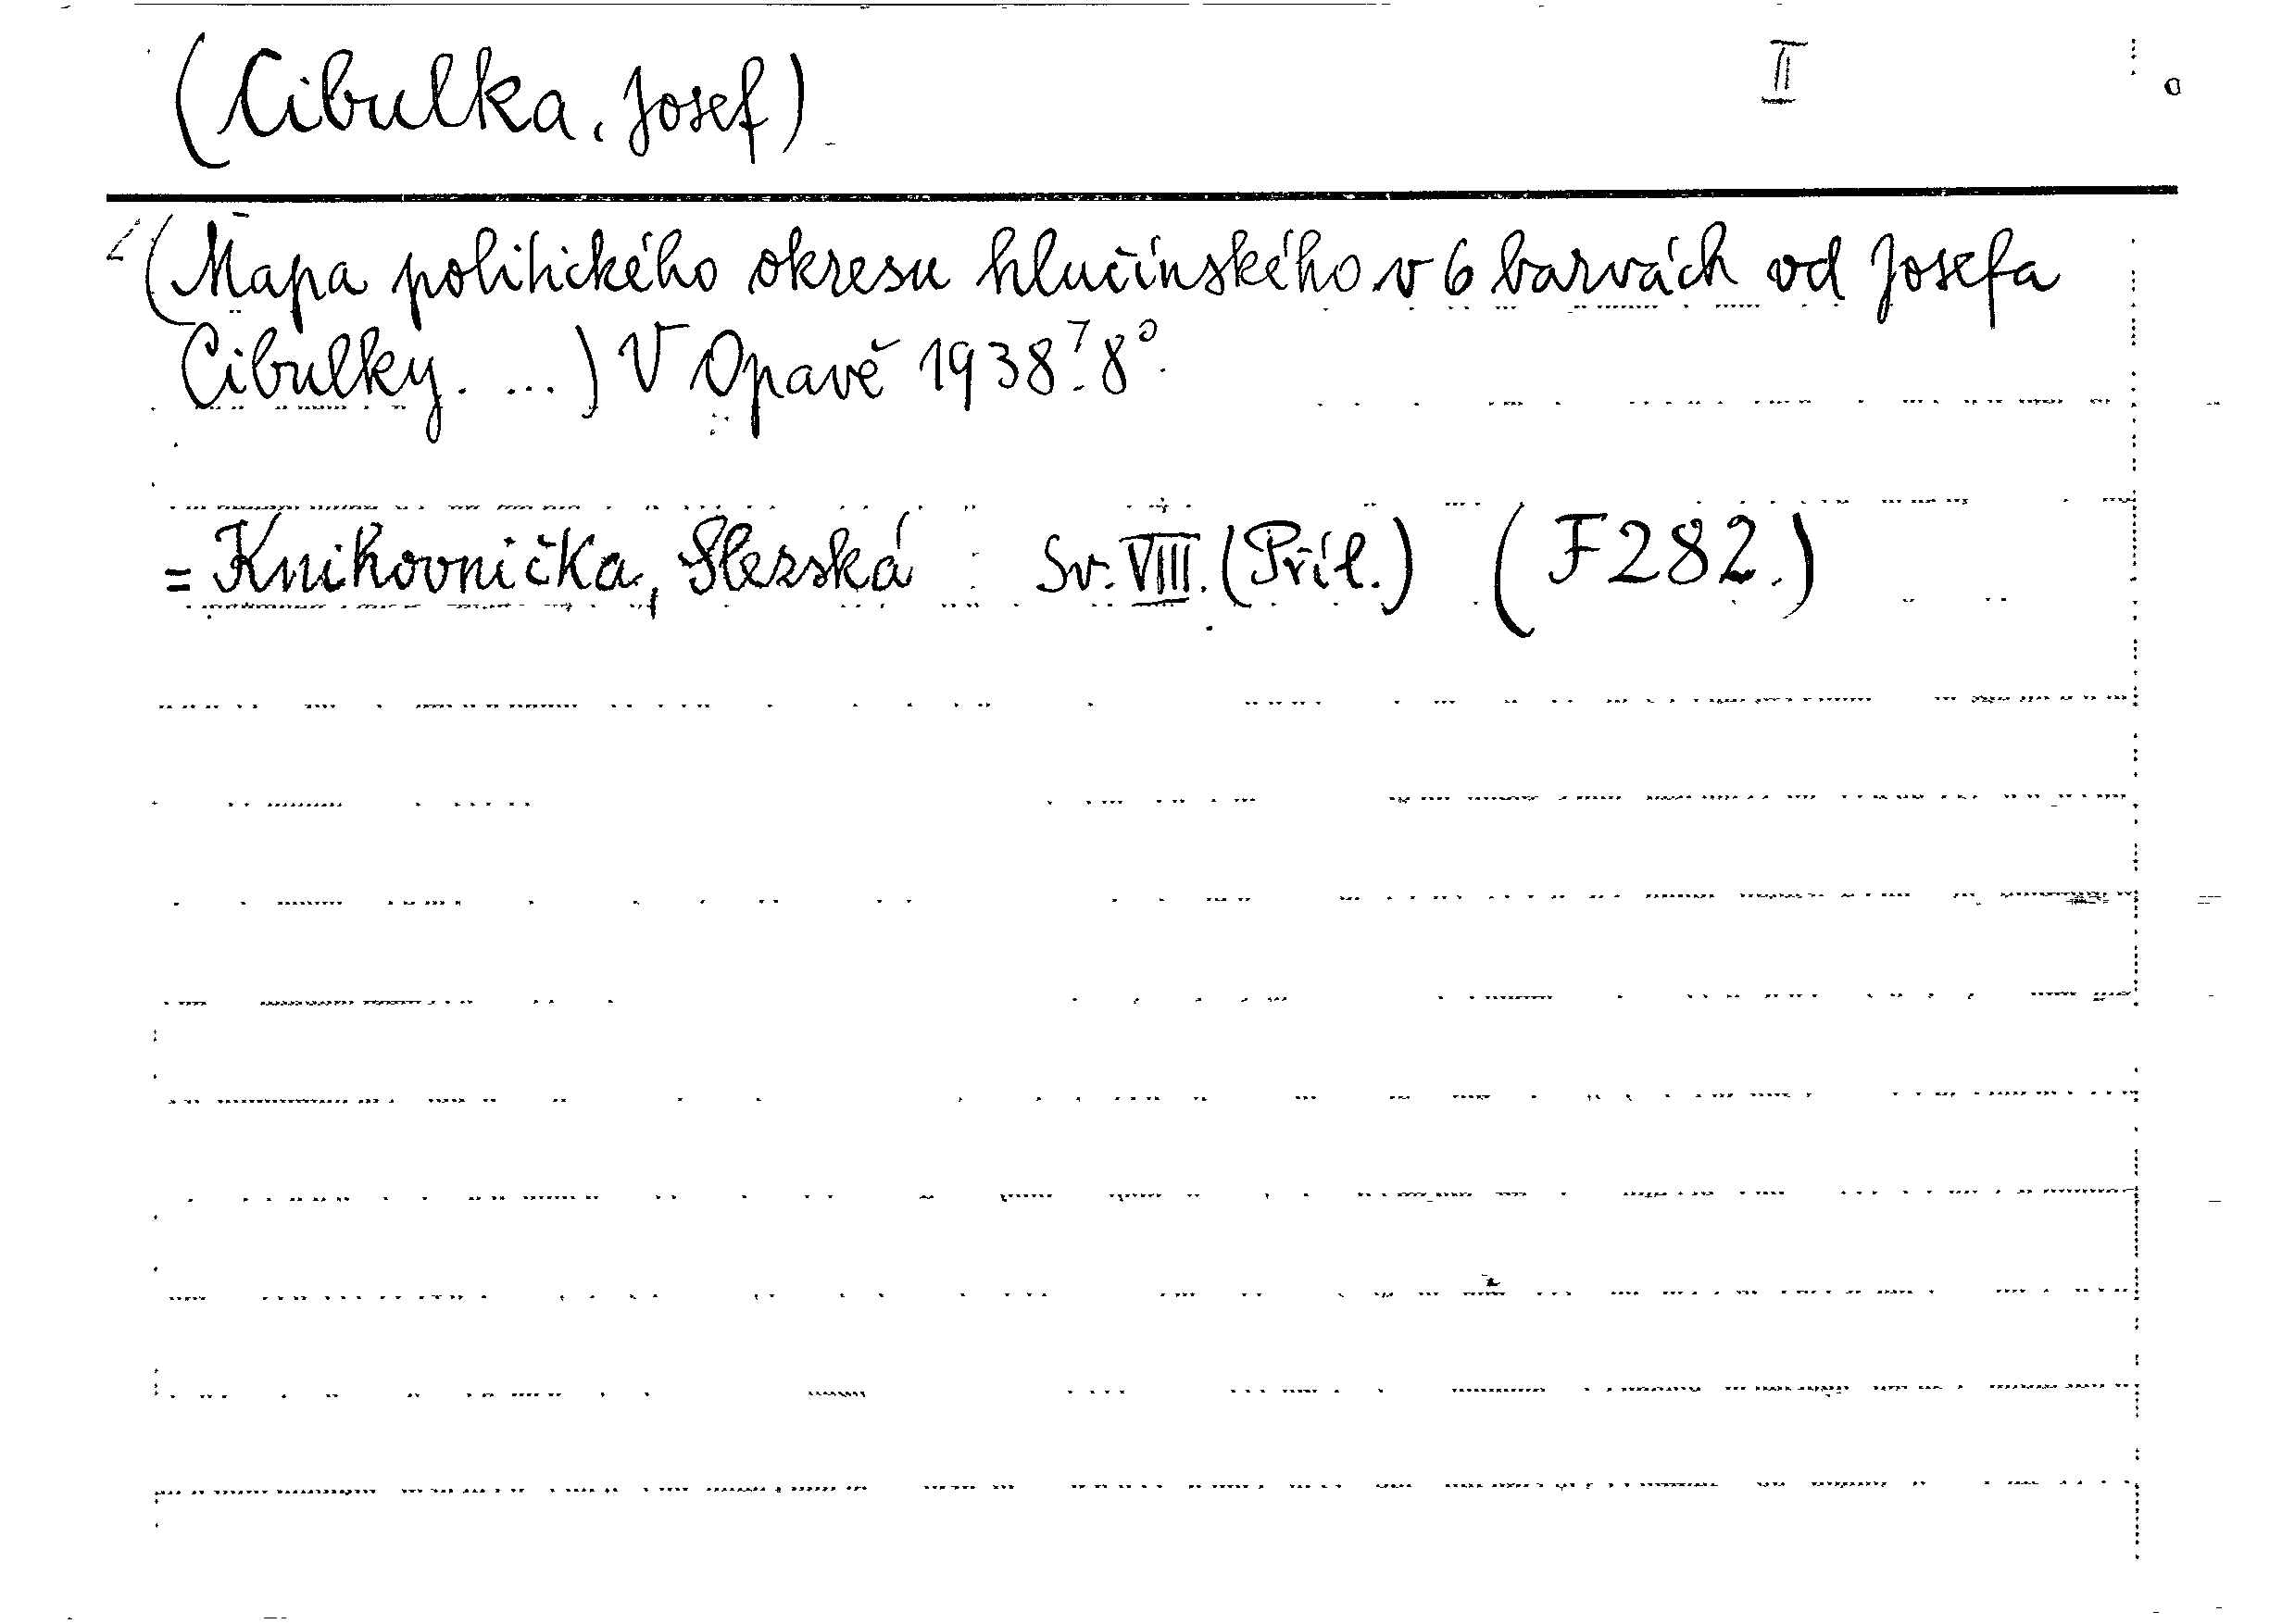 (Cibulka, Josef) II
(Mapa politického okresu hlučínského v 6 barvách od Josefa
Cibulky. ...) V Opavě 1938. 8°.
= Knihovnička, Slezská Sv. VIII. (Příl.) (F282.)